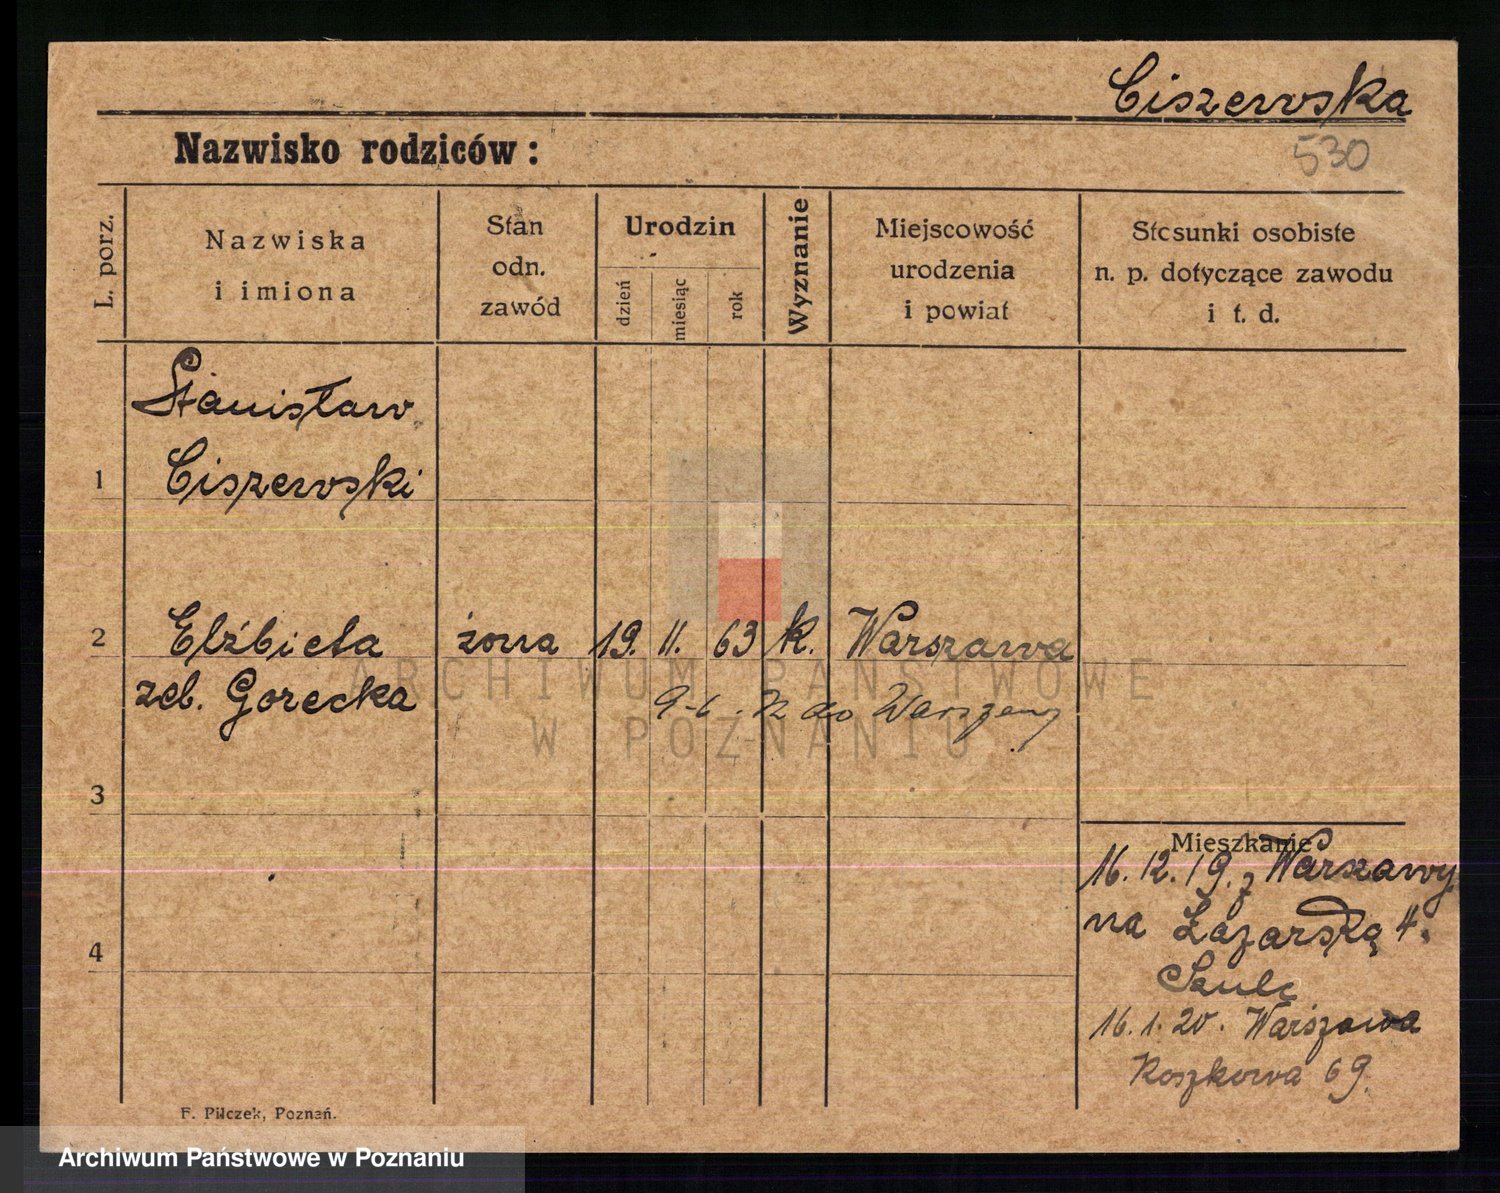 Ciszewska
530
Nazwisko rodziców:
L. porz.
Nazwiska
i imiona
Stan
odn.
zawód
Urodzin
dzień
miesiąc
rok
Wyznanie
Miejscowość
urodzenia
i powiat
Stosunki osobiste
n. p. dotyczące zawodu
i t. d.
Stanisław
1 Ciszewski
2 Elżbieta żona 19. 11. 63 k. Warszawa
zeb. Gorecka
do Warszawy
3
Mieszkanie
16. 12. 19. z Warszawy
na Łazarską 4.
Szulc
4
16. 1. 20. Warszawa
Koszkowa 69.
F. Pilczek, Poznań.
ARCHIWUM PAŃSTWOWE
W POZNANIU
Archiwum Państwowe w Poznaniu